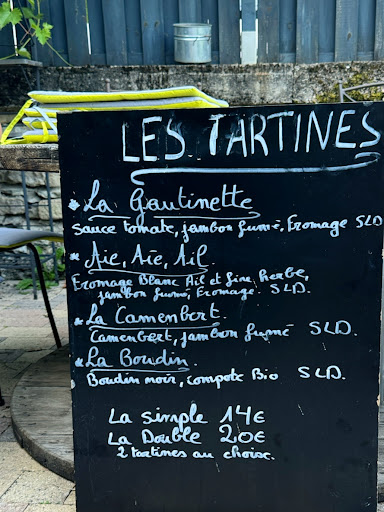 LES TARTINES
* La Gautinette
Sauce tomate, jambon fumé, Fromage SLD
* Aïe, Aïe, Ail.
Fromage Blanc Ail et fine herbe,
jambon fumé, Fromage. SLD.
* La Camenbert.
Camenbert, jambon fumé SLD.
* La Boudin.
Boudin noir, compote Bio SLD.
La simple 14€
La Double 20€
2 tartines au choix.